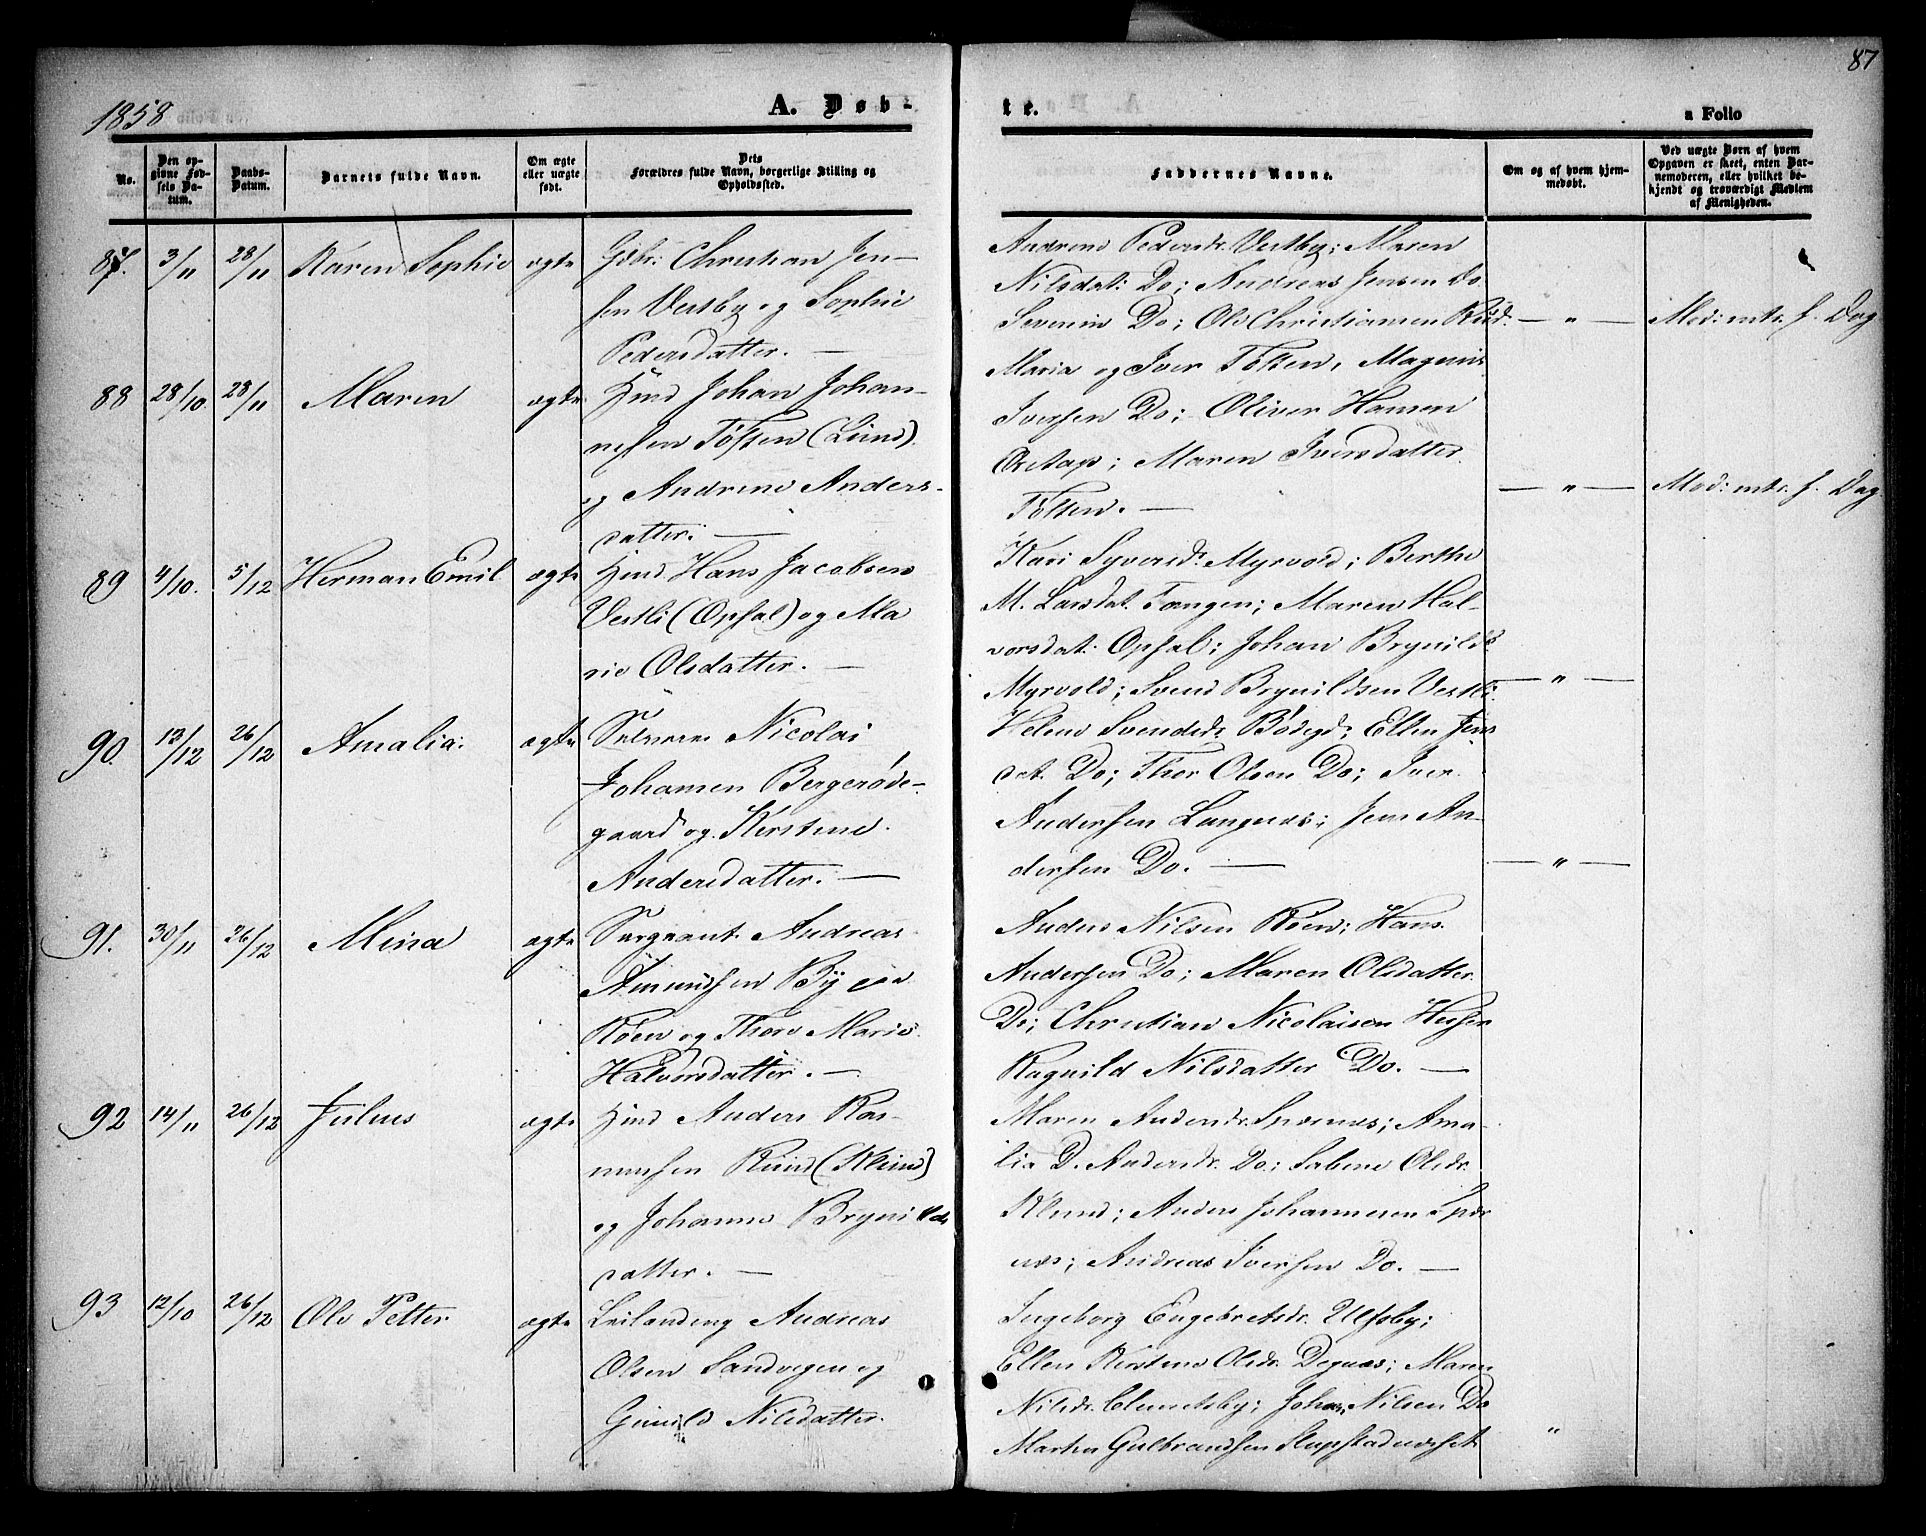 87
1858
A. Døb-
te.
a Folio
No.
Den opgivne Fødsels Datum.
Daabs-Datum.
Barnets fulde Navn.
Om ægte eller uægte født.
Dets Forældres fulde Navn, borgerlige Stilling og Opholdssted.
Faddernes Navne.
Om og af hvem hjemmedøbt.
Ved uægte Børn af hvem Opgaven er skeet, enten Barnemoderen, eller hvilket bekjendt og troværdigt Medlem af Menigheden.
87. 3/11 28/11 Karen Sophie ægte Gbr: Christian Jen-
sen Vestby og Sophie
Pedersdatter. —
Andrine Pedersdr. Vestby; Maren
Nilsdat: Do; Andreas Jensen Do
Severin Do; Ole Christiansen Rud.
— " — Mod: intr. s. Dag
88 28/10. 28/11 Maren ægte Hmd Johan Johan-
nesen Tofsen (Lund)
og Andrine Anders-
datter: —
Maria og Iver Tofsen, Magnus
Iversen Do; Oliver Hansen
Maren Iversdatter
Tofsen. —
— " — Mod: intr. s. Dag
89 4/10. 5/12 Herman Emil ægte Hmd. Hans Jacobsen
Vestli (Opsal) og Ma
rie Olsdatter. —
Kari Syversdr. Myrvold; Berthe
M. Larsdat. Tangen; Maren Hal-
vorsdat: Opsal; Johan Brynilds
Myrvold; Svend Brynildsen Vestli.
— " —
90. 13/12 26/12 Amalia. ægte Selveier Nicolai
Johansen Bergerøde-
gaard og Kirstine
Andersdatter. —
Helene Svendsdr. Bødegd; Ellen Jens
dat. Do; Thor Olsen Do; Iver
Andersen Langnæs; Jens An-
dersen Do. —
— " —
91. 30/11 26/12 Mina ægte Sergeant Andreas
Amundsen By
Røen og Thore Marie
Halvorsdatter. —
Anders Nilsen Røen; Hans
Andersen Do; Maren Olsdatter
Do; Christian Nicolaisen
Ragnild Nilsdatter Do. —
92 14/11 26/12 Julius ægte Hmd Anders Ras-
mussen Rund (Klund)
og Johanne Brynilds
datter. —
Maren Andersdr. Spærnæs; Ama-
lia D. Andersdr. Do; Sabine Olsdr.
Klund; Anders Johannesen Spær
næs; Andreas Iversen Do. —
93 12/10 26/12 Ole Petter ægte Leilænding Andreas
Olsen Sandvigen og
Gunild Nilsdatter.
Ingeborg Engebretsdr. Ulfsby;
Ellen Kirstine Olsdr. Degnæs; Maren
Nilsdr. Clemetsby; Johan Nilsen Do
Martin Gulbrandsen
"